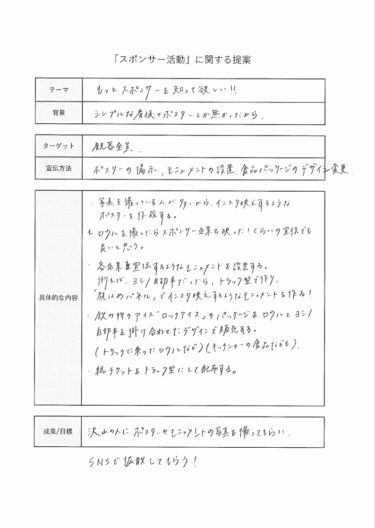 「スポンサー活動」に関する提案
テーマ
もっとスポンサーを知って欲しい!!
背景
シンプルな看板やポスターしか無かったから。
ターゲット
観客全員。
宣伝方法
ポスターの掲示、モニュメントの設置 食品パッケージのデザイン変更
具体的な内容
・写真を撮っている人が多いから、インスタ映えするような
ポスターを作成する。
を撮ったらスポンサー企業も映った!くらいの宣伝でも
良いと思う。
・各企業を宣伝するようなモニュメントを設置する。
例えば、ヨシノ自動車だったら、トラック型で作り、
"顔はめパネル"でインスタ映えするようなモニュメントを作る!
・飲み物やアイス"ロックアイス"のパッケージをロウルとヨシノ
自動車を掛け合わせたデザインで販売する。
(トラックに乗ったロウルなど)(キッチンカーの食品なども)
・紙チケットをトラック型にして配布する。
成果/目標
沢山の人にポスターやモニュメントの写真を撮ってもらい、
SNSで拡散してもらう!